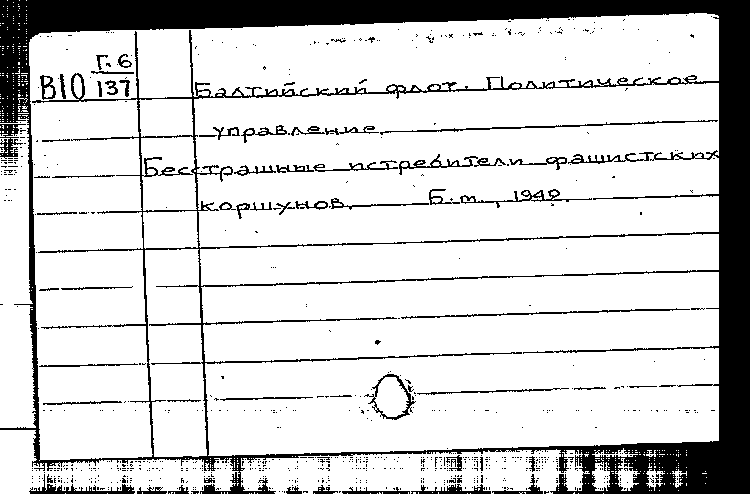 Г. 6
В10 137 Балтийский флот. Политическое
управление.
Бесстрашные истребители фашистских
коршунов. Б.т., 1942.